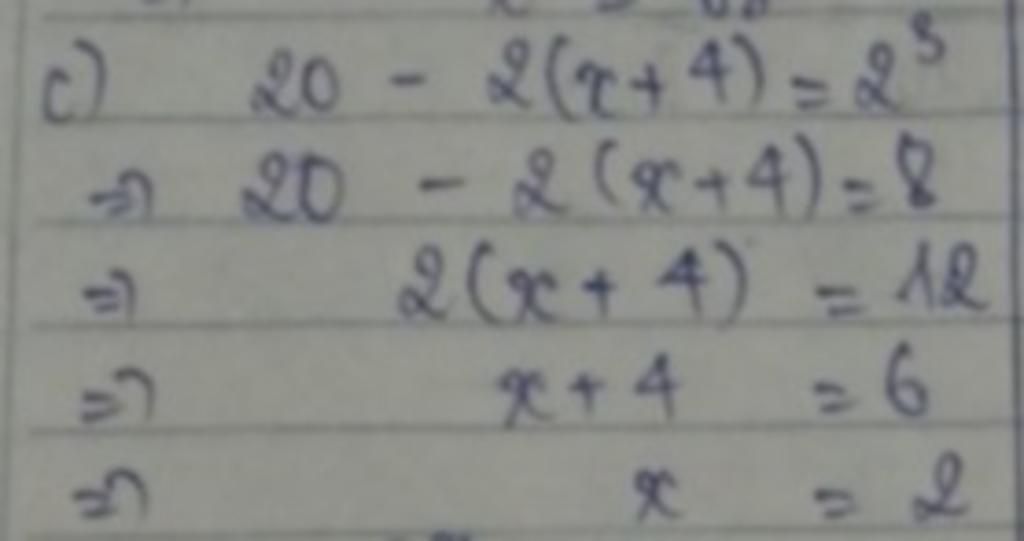 c) 20 - 2(x+4) = 2³
=> 20 - 2(x+4) = 8
=> 2(x+4) = 12
=> x+4 = 6
=> x = 2